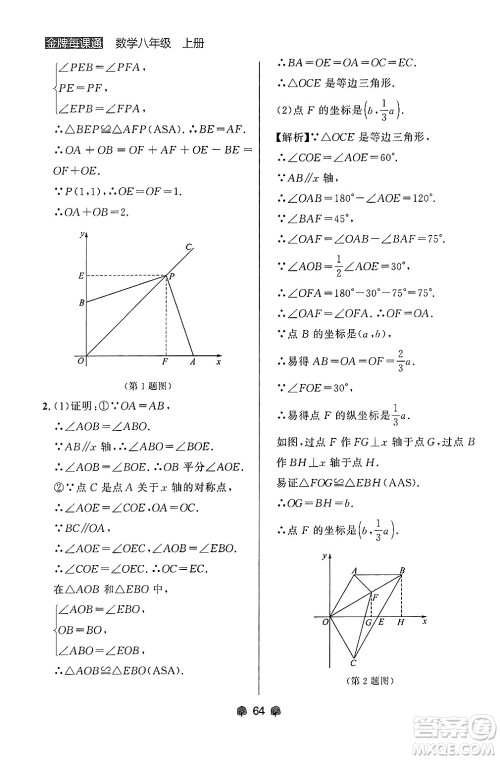 金牌每课通 数学八年级 上册
∠PEB=∠PFA,
PE=PF,
∠EPB=∠FPA,
∴△BEP≌△AFP(ASA).
∴OA+OB=OF+AF+OB=OE+
OF.
∵P(1,1),∴OE=OF=1.
∴OA+OB=2.
y
E
P
B
O
F
A
x
(第1题图)
2.(1)证明:①∵OA=AB,
∴∠AOB=∠ABO.
∵AB∥x轴,∴∠ABO=∠BOE.
∴∠AOB=∠BOE.∴OB平分∠AOE.
②∵点C是点A关于x轴的对称点,
∴∠AOE=∠COE,OA=OC.
∵BC∥OA,
∴∠AOE=∠OEC,∠AOB=∠EBO.
在△AOB和△EBO中,
∠AOB=∠EBO,
OB=BO,
∠ABO=∠EOB,
∴△AOB≌△EBO(ASA).
∴∠COE=∠OEC=∠OCE.
∴△OCE是等边三角形.
(2)点F的坐标是(b,1/3a).
【解析】∵△OCE是等边三角形,
∴∠COE=∠AOE=60°.
∵AB∥x轴,
∴∠OAB=180°-∠AOE=120°.
∵∠BAF=45°,
∴∠OAF=∠OAB-∠BAF=75°.
∵∠AOB=1/2∠AOE=30°,
∴∠OFA=180°-30°-75°=75°.
∴∠OAF=∠OFA.∴OA=OF.
∵点B的坐标是(a,b),
∴易得AB=OA=OF=2/3a.
∴易得点F的纵坐标是1/3a.
如图,过点F作FG⊥x轴于点G,过点B
作BH⊥x轴于点H.
易证△FOG≌△EBH(AAS).
∴OG=BH=b.
∴点F的坐标是(b,1/3a).
y
A
B
F
O
G
E
H
x
C
(第2题图)
64
答案圈
MXQE.COM